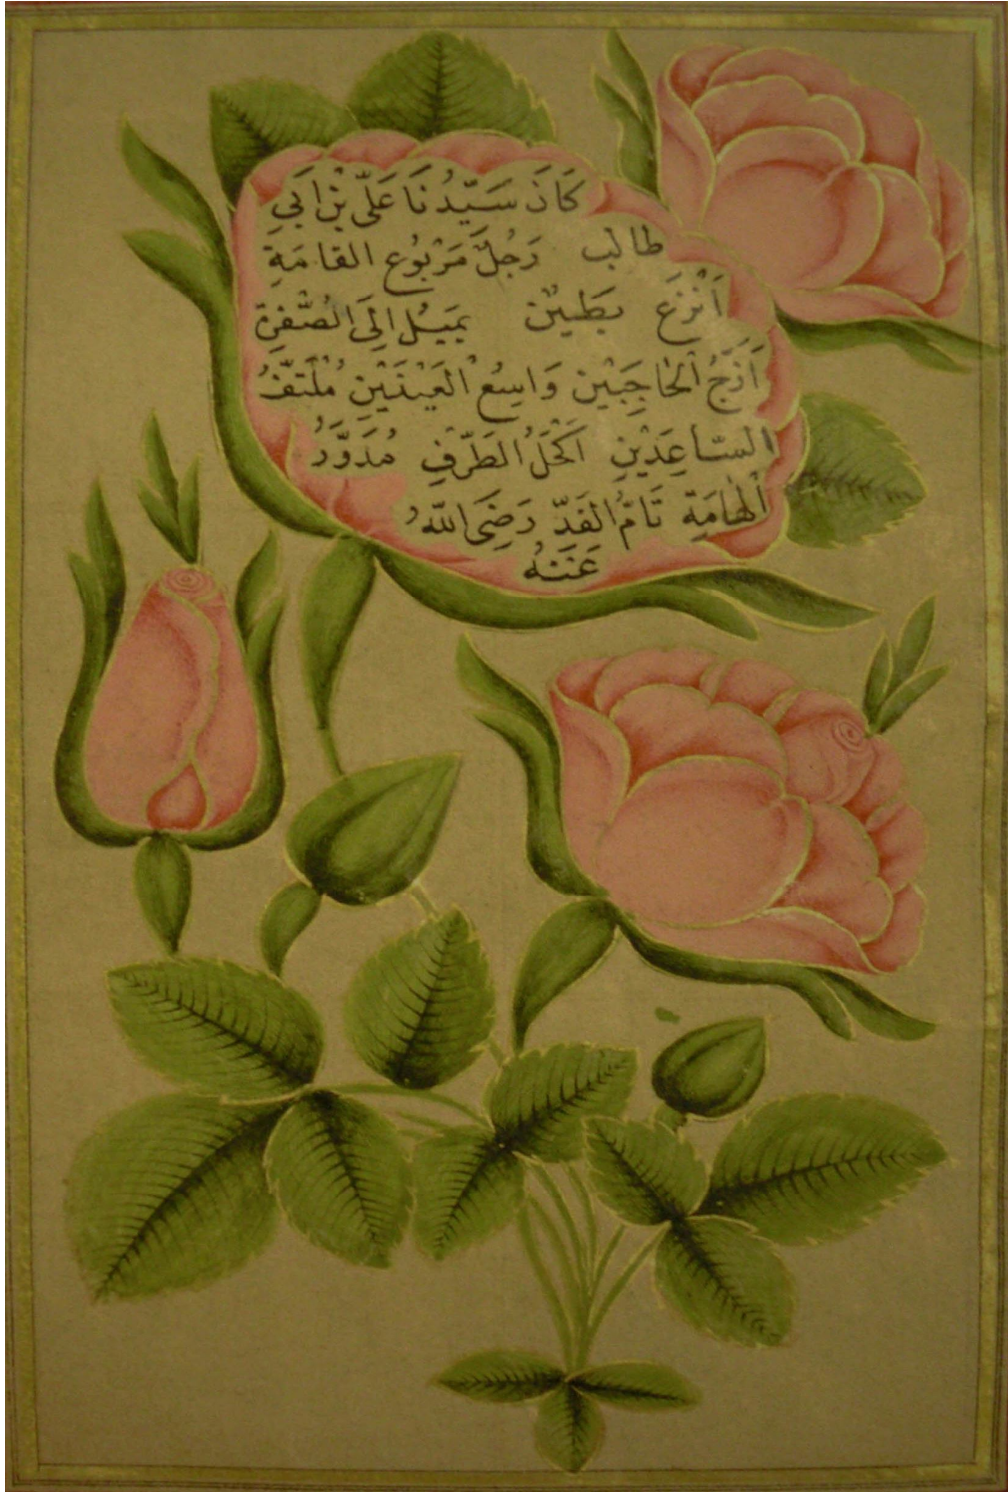 كَانَ سَيّدُنَا عَلَىّ بْنِ اَبِي
طالب رَجُلٌ مَرْبُوع القامَةِ
اَنْزَعَ بَطِيْن يَمِيَلُ اِلَى الصُّفرَةِ
اَزَجُّ الْحَاجِبَيْنِ وَاسِعُ الْعَيْنَيْنِ مُلْتَفُّ
السَّاعِدَيْنِ اَكْحَلُ الطَّرْفِ مُدَوَّرُ
الْهَامَةِ تَامُّ القَدّ رَضِىَ اللّهُ
عَنْهُ